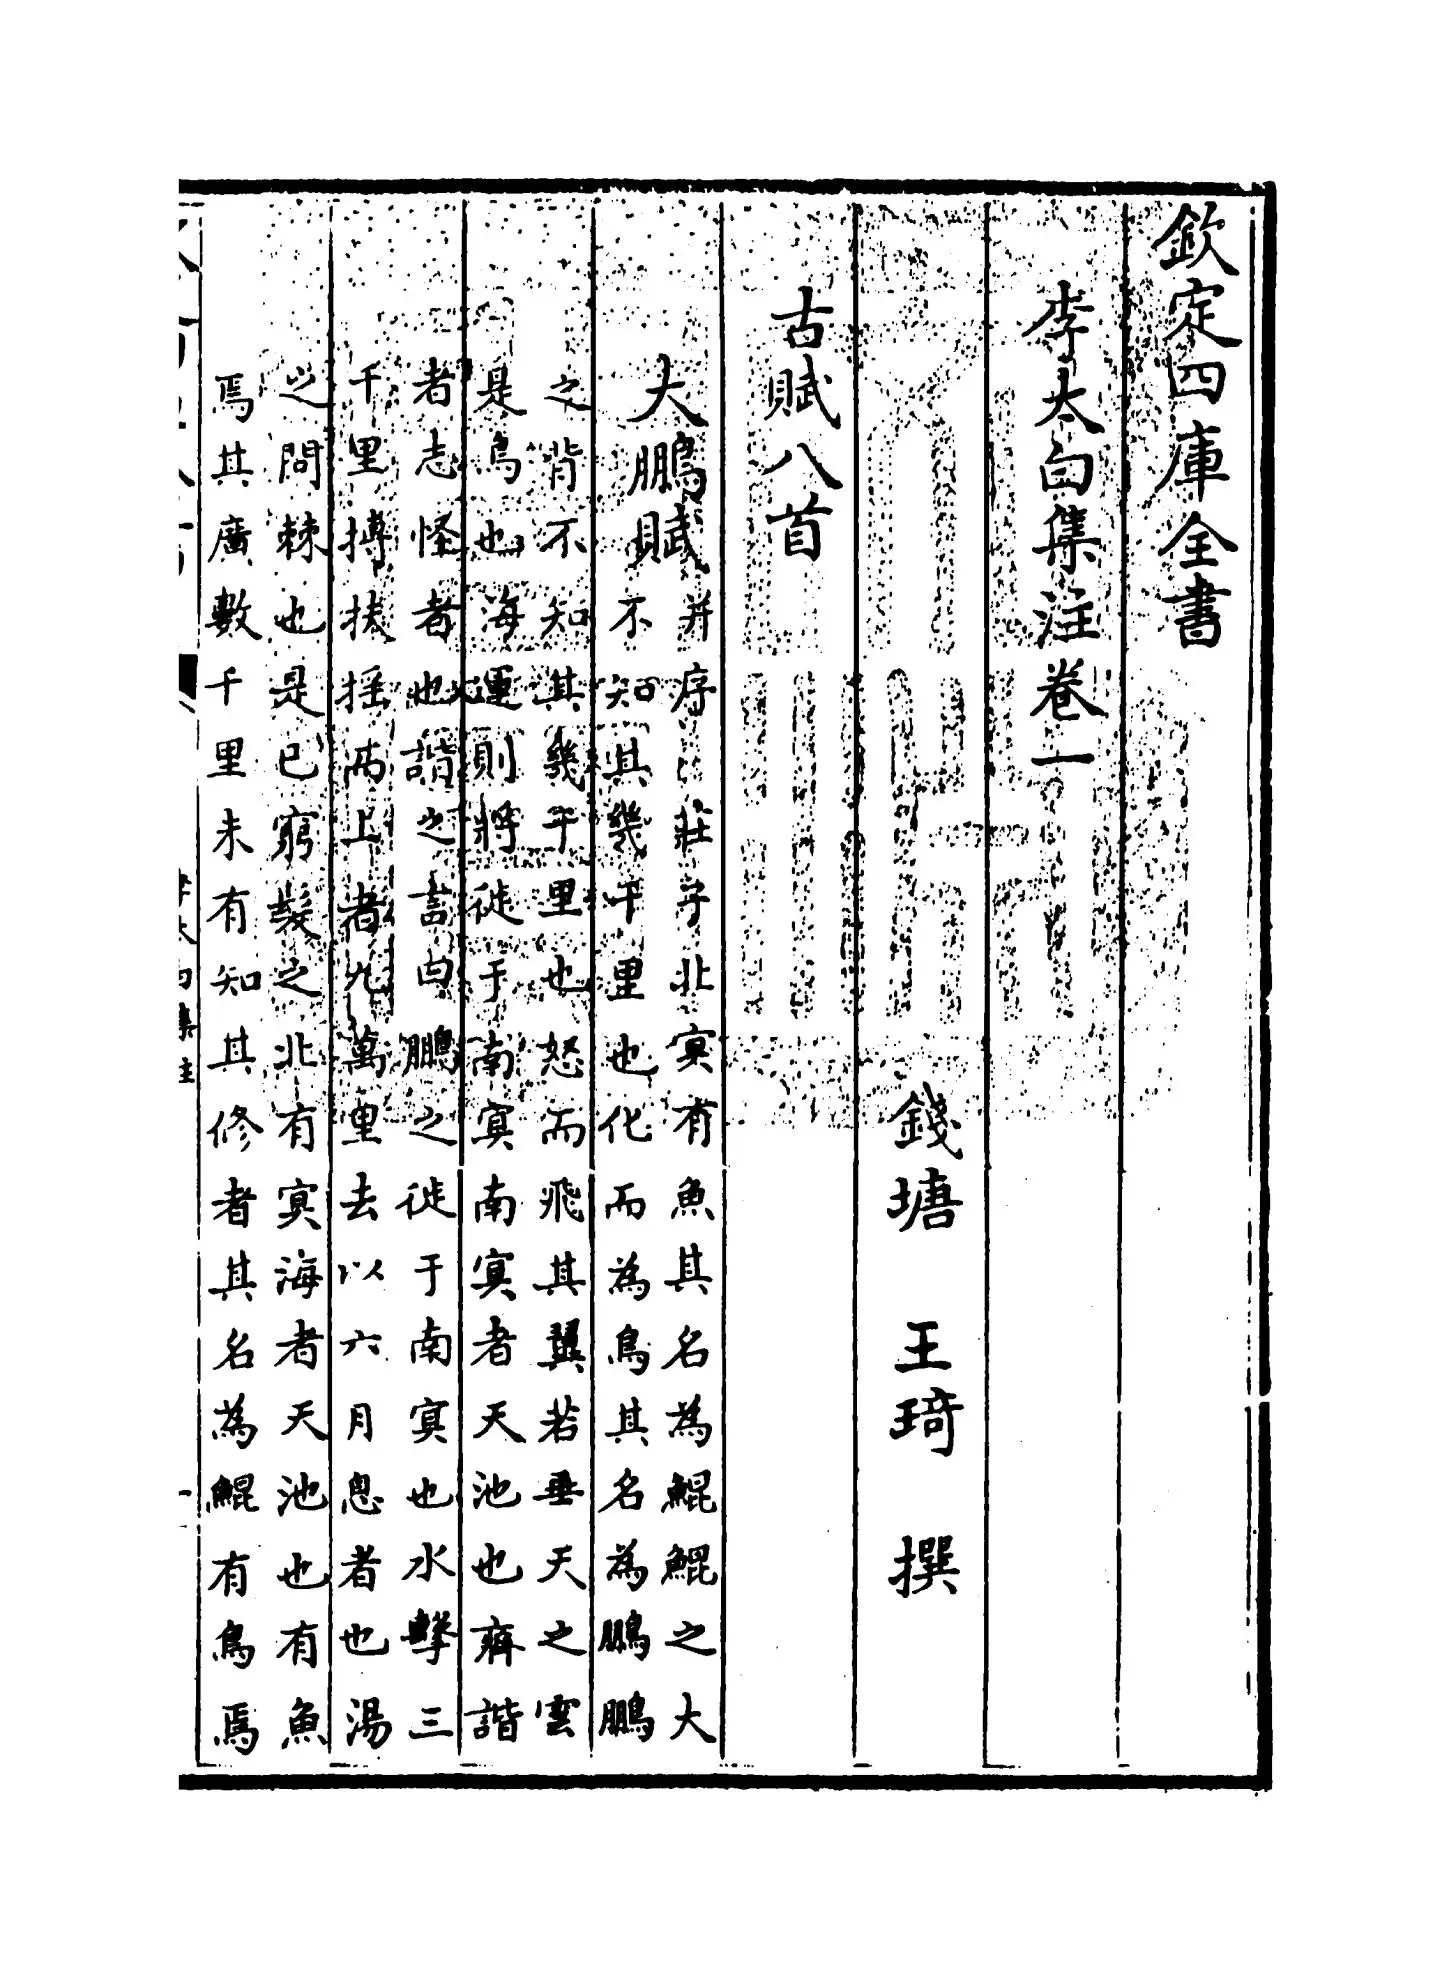 欽定四庫全書
李太白集注卷一
錢塘 王琦 撰
古賦八首
大鵬賦并序 莊子北冥有魚其名為鯤鯤之大
不知其幾千里也化而為鳥其名為鵬鵬
之背不知其幾千里也怒而飛其翼若垂天之雲
是鳥也海運則將徙于南冥南冥者天池也齊諧
者志怪者也諧之言曰鵬之徙于南冥也水擊三
千里搏扶搖而上者九萬里去以六月息者也湯
之問棘也是已窮髮之北有冥海者天池也有魚
焉其廣數千里未有知其修者其名為鯤有鳥焉
李太白集注